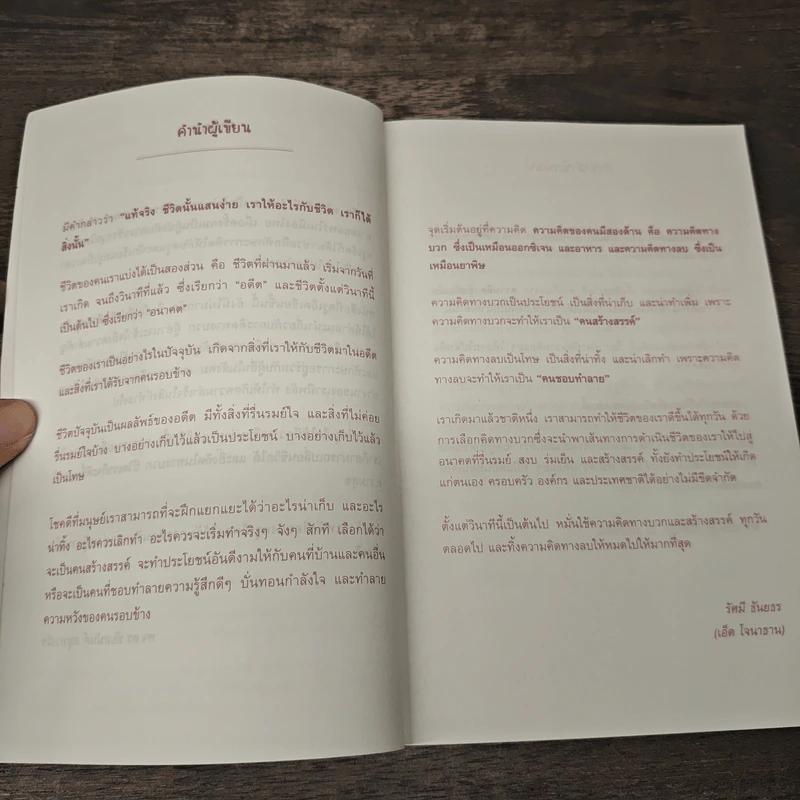 คำนำผู้เขียน
มีคำกล่าวว่า "แท้จริง ชีวิตนั้นแสนง่าย เราให้อะไรกับชีวิต เราก็ได้
สิ่งนั้น"
ชีวิตของคนเราแบ่งได้เป็นสองส่วน คือ ชีวิตที่ผ่านมาแล้ว เริ่มจากวันที่
เราเกิด จนถึงวินาทีที่แล้ว ซึ่งเรียกว่า "อดีต" และชีวิตตั้งแต่วินาทีนี้
เป็นต้นไป ซึ่งเรียกว่า "อนาคต"
ชีวิตของเราเป็นอย่างไรในปัจจุบัน เกิดจากสิ่งที่เราให้กับชีวิตมาในอดีต
และสิ่งที่เราได้รับจากคนรอบข้าง
ชีวิตปัจจุบันเป็นผลลัพธ์ของอดีต มีทั้งสิ่งที่รื่นรมย์ใจ และสิ่งที่ไม่ค่อย
รื่นรมย์ใจบ้าง บางอย่างเก็บไว้แล้วเป็นประโยชน์ บางอย่างเก็บไว้แล้ว
เป็นโทษ
โชคดีที่มนุษย์เราสามารถที่จะฝึกแยกแยะได้ว่าอะไรน่าเก็บ และอะไร
น่าทิ้ง อะไรควรเลิกทำ อะไรควรจะเริ่มทำจริงๆ จังๆ สักที เลือกได้ว่า
จะเป็นคนสร้างสรรค์ จะทำประโยชน์อันดีงามให้กับคนที่บ้านและคนอื่น
หรือจะเป็นคนที่ชอบทำลายความรู้สึกดีๆ บั่นทอนกำลังใจ และทำลาย
ความหวังของคนรอบข้าง
จุดเริ่มต้นอยู่ที่ความคิด ความคิดของคนมีสองด้าน คือ ความคิดทาง
บวก ซึ่งเป็นเหมือนออกซิเจน และอาหาร และความคิดทางลบ ซึ่งเป็น
เหมือนยาพิษ
ความคิดทางบวกเป็นประโยชน์ เป็นสิ่งที่น่าเก็บ และน่าทำเพิ่ม เพราะ
ความคิดทางบวกจะทำให้เราเป็น "คนสร้างสรรค์"
ความคิดทางลบเป็นโทษ เป็นสิ่งที่น่าทิ้ง และน่าเลิกทำ เพราะความคิด
ทางลบจะทำให้เราเป็น "คนชอบทำลาย"
เราเกิดมาแล้วชาติหนึ่ง เราสามารถทำให้ชีวิตของเราดีขึ้นได้ทุกวัน ด้วย
การเลือกคิดทางบวกซึ่งจะนำพาเส้นทางการดำเนินชีวิตของเราให้ไปสู่
อนาคตที่รื่นรมย์ สงบ ร่มเย็น และสร้างสรรค์ ทั้งยังทำประโยชน์ให้เกิด
แก่ตนเอง ครอบครัว องค์กร และประเทศชาติได้อย่างไม่มีขีดจำกัด
ตั้งแต่วินาทีนี้เป็นต้นไป หมั่นใช้ความคิดทางบวกและสร้างสรรค์ ทุกวัน
ตลอดไป และทิ้งความคิดทางลบให้หมดไปให้มากที่สุด
รัศมี ธันยธร
(เอ็ด โจนาธาน)